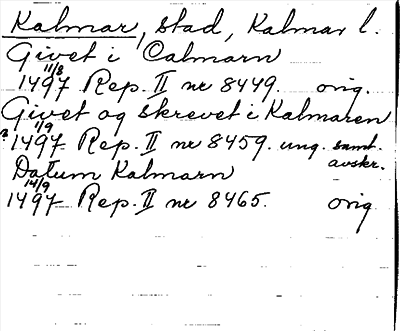 Kalmar, stad, Kalmar l.
Givet i Calmarn
1497 11/8 Rep. II nr 8449. orig.
Givet og skrevet i Kalmaren
? 1497 1/9 Rep. II nr 8459. ung. samt. avskr.
Datum Kalmarn
1497 14/9 Rep. II nr 8465. orig